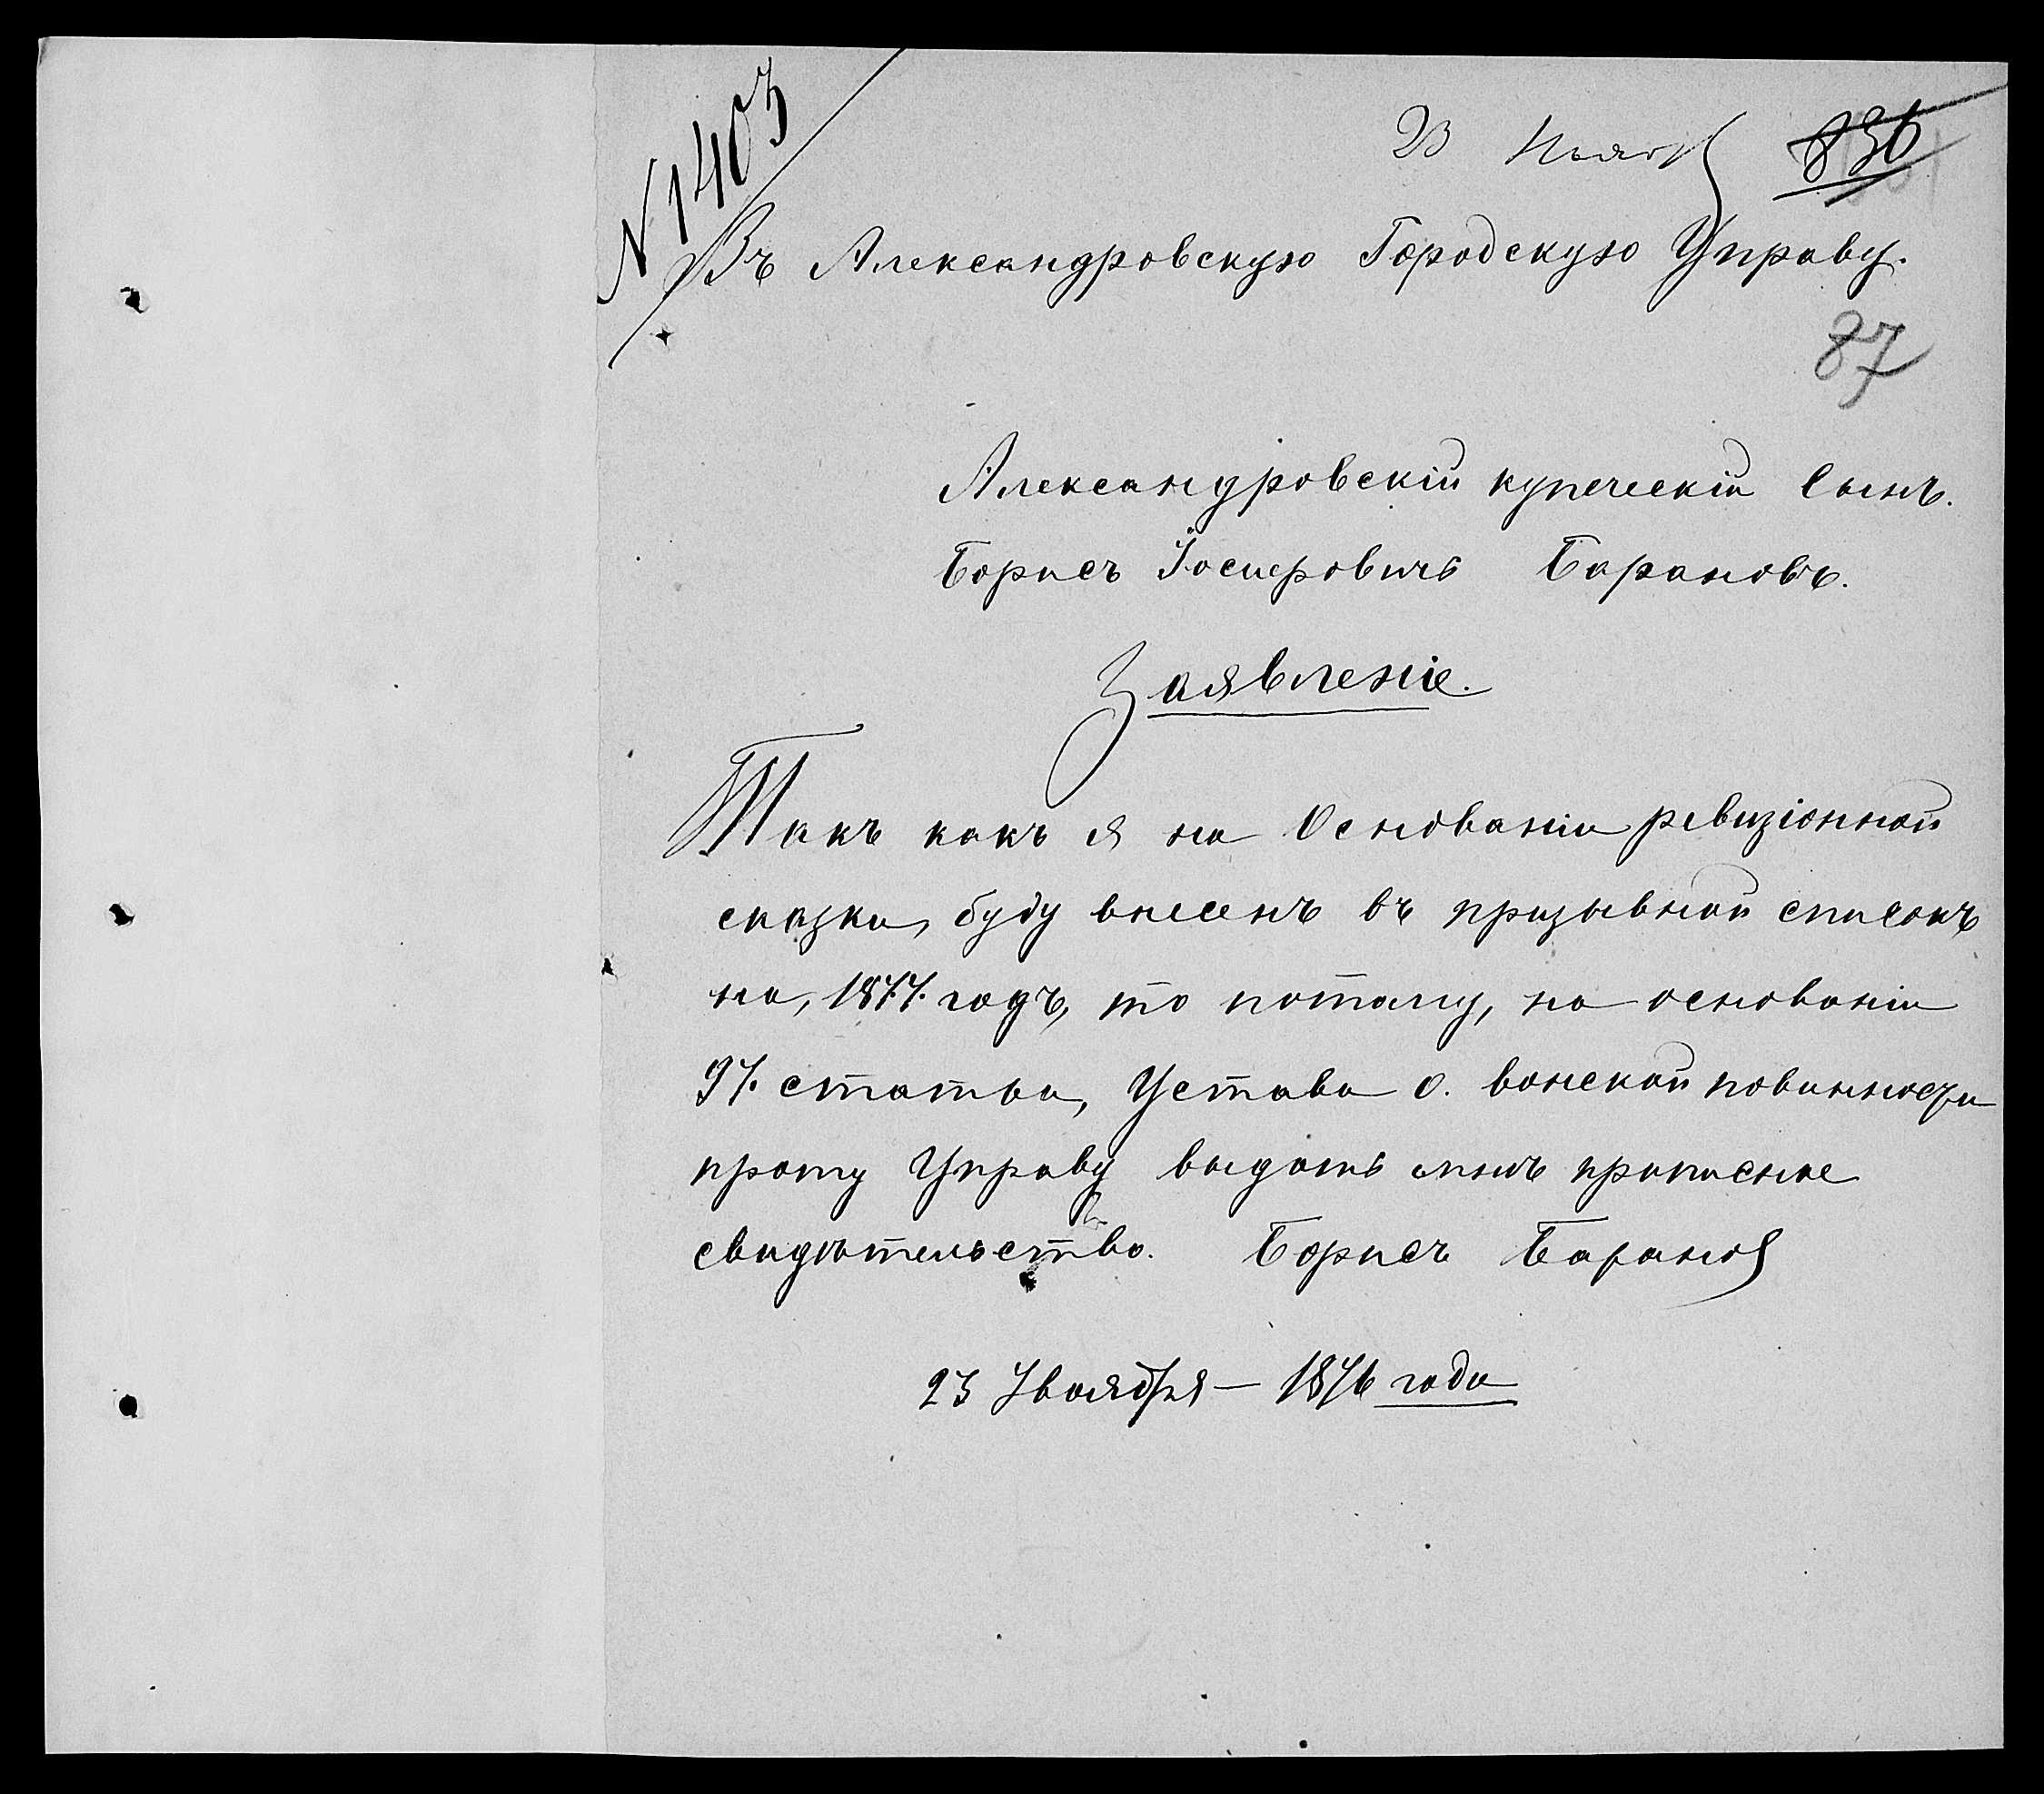 N 1403
23 Нояб 836
Въ Александровскую Городскую Управу.
87
Александровскій купеческій сынъ.
Борисъ Іосифовичъ Барановъ.
Заявленіе.
Такъ какъ я на Основаніи ревизіонной
сказки, буду внесенъ въ призывной списокъ
на, 1877. годъ, то потому, на основаніи
97. статьи, Устава о. воиской повинности
прошу Управу выдать мнѣ приписное
свидѣтельство. Борисъ Баранов
23 Ноября — 1876 года